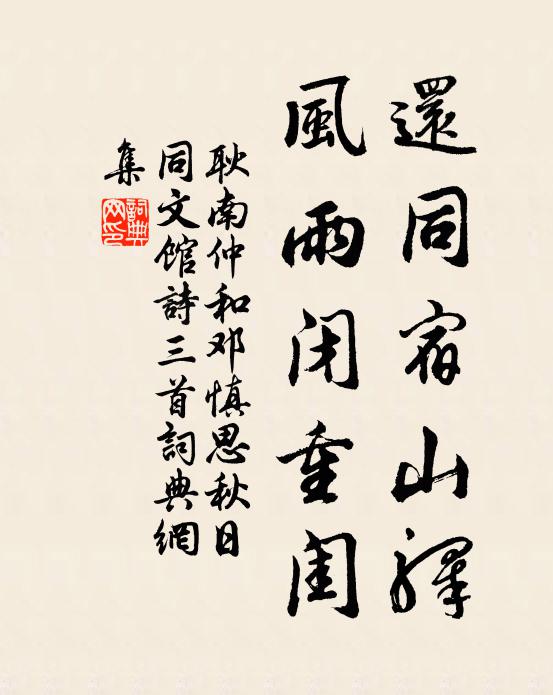 還同宿山驛
風雨闭重闺
耿南仲和邓慎思秋日
同文馆詩三首詞典網
集
詞典
网印